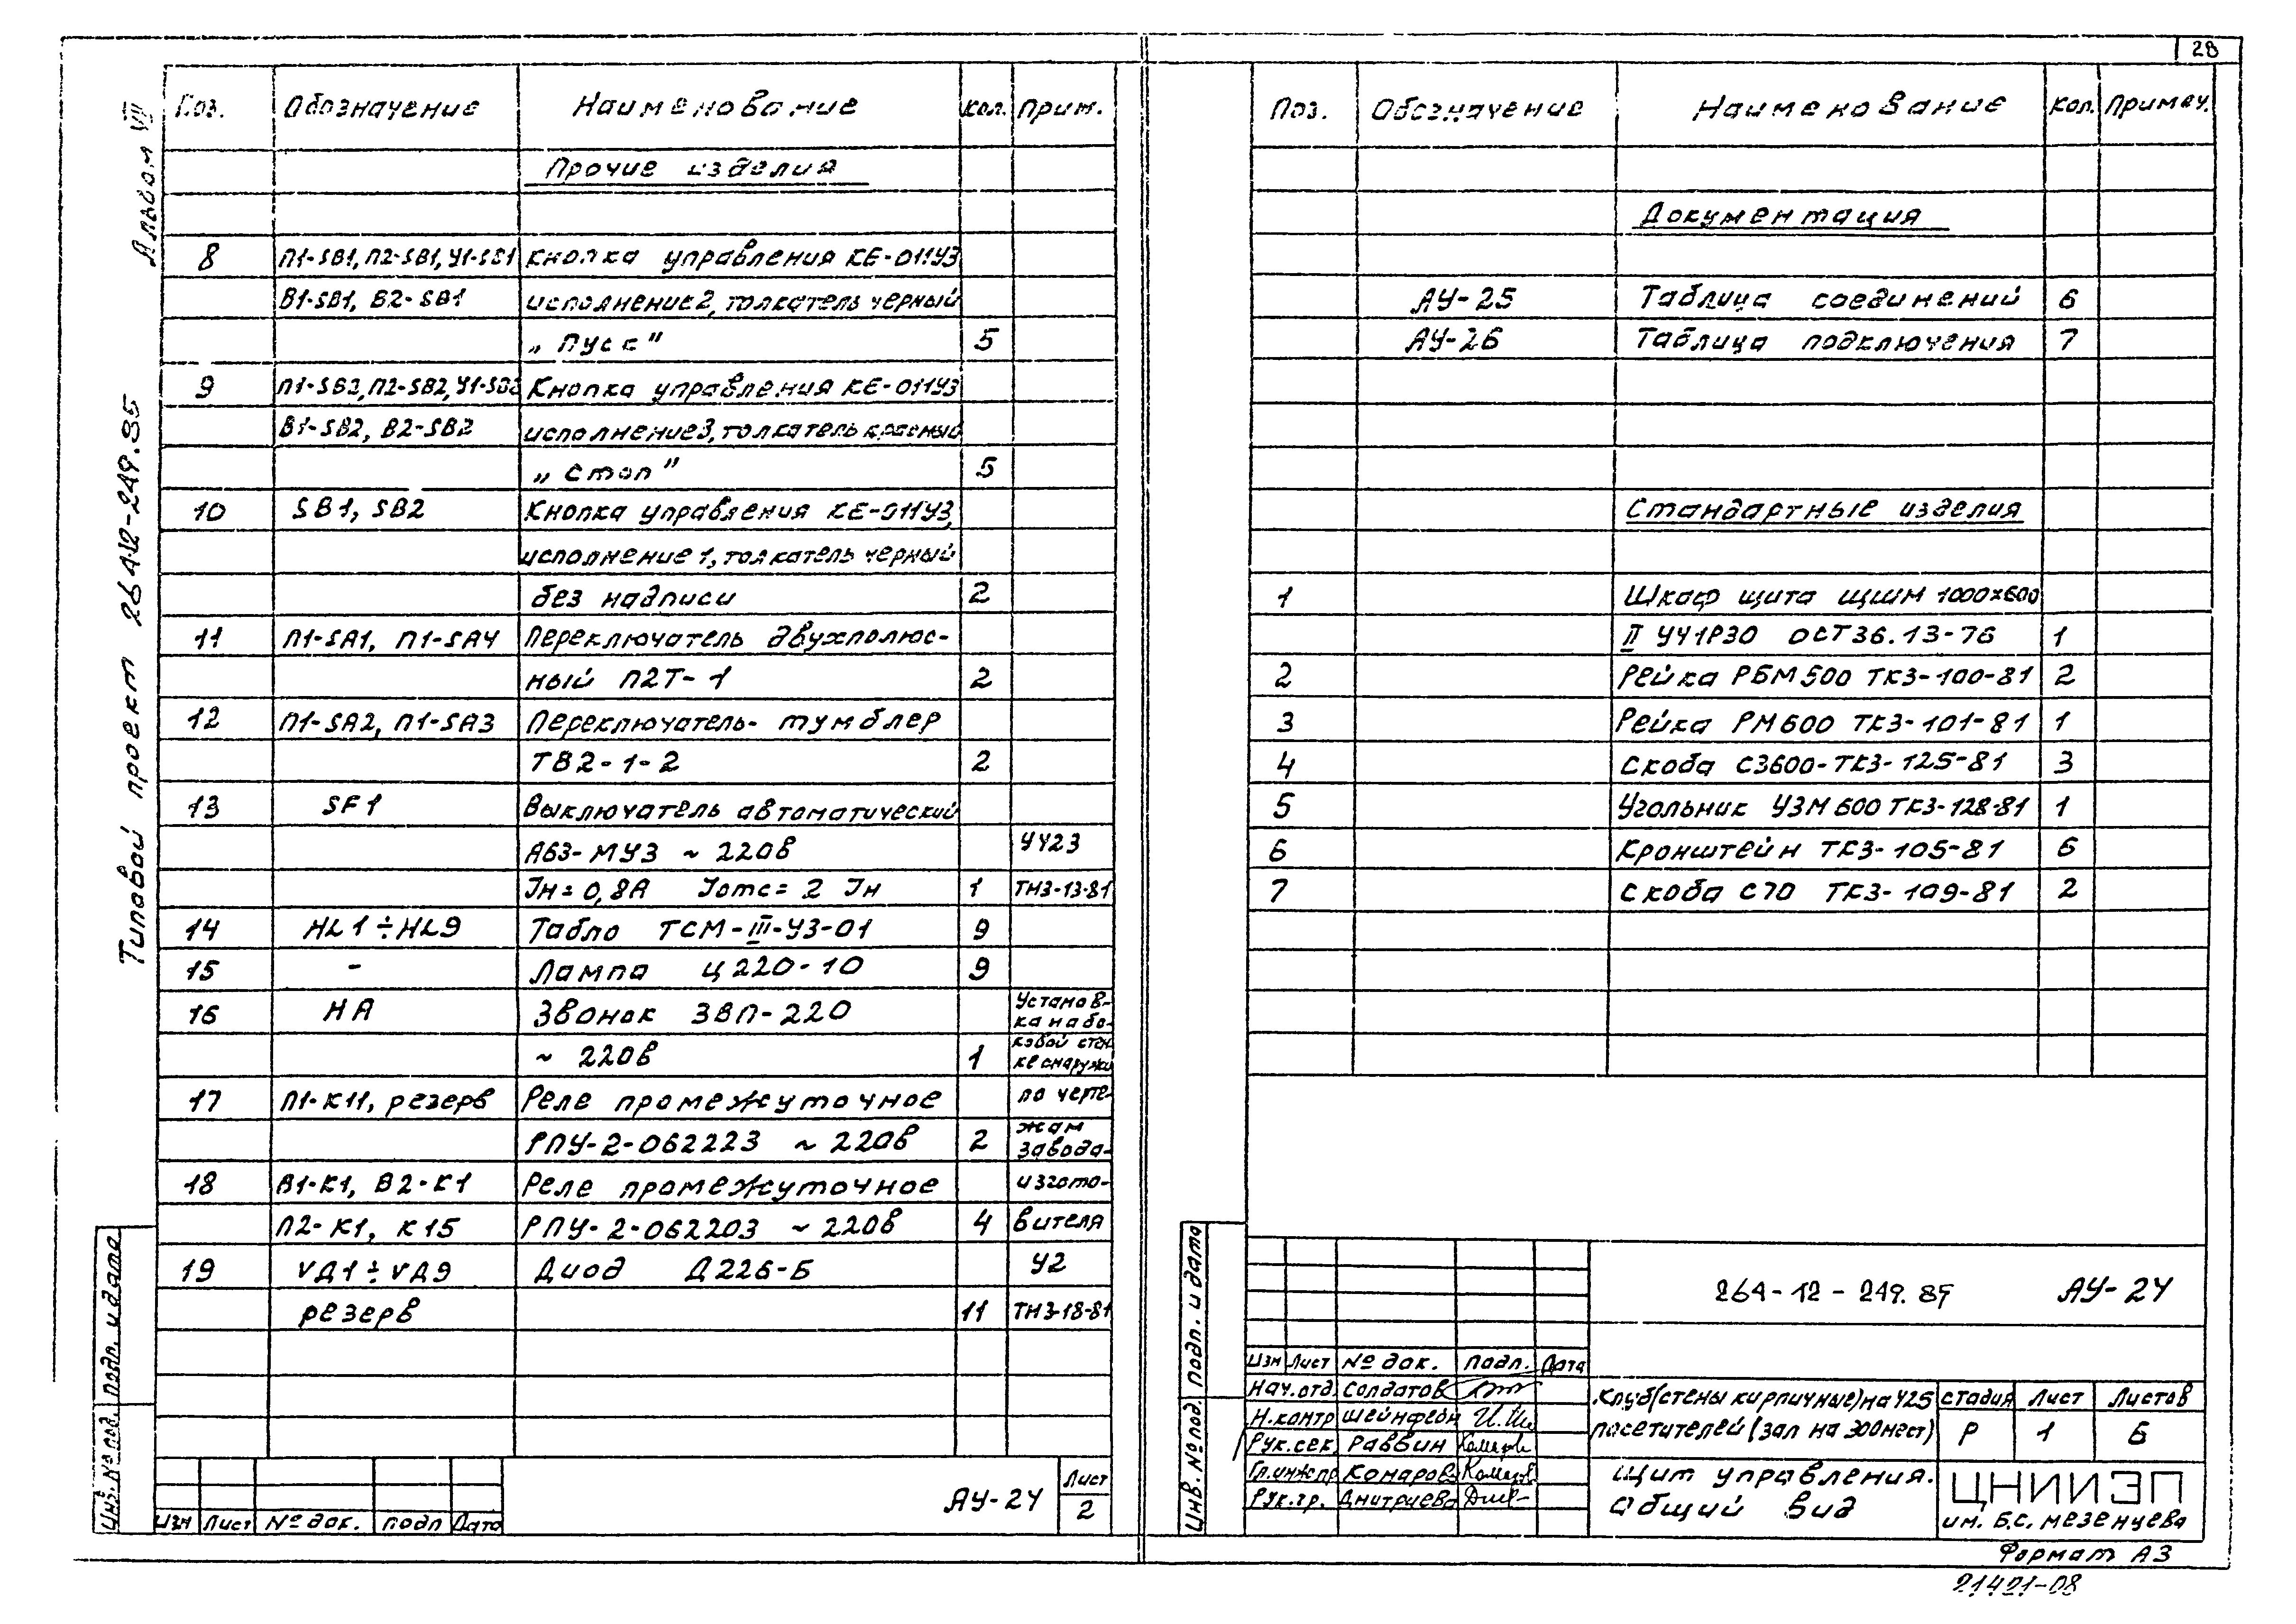 28
Альбом VII
Типовой проект 264-12-249.85
Поз. Обозначение Наименование Кол. Прим.
Прочие изделия
8 П1-SB1, П2-SB1, У1-SB1 Кнопка управления КЕ-011У3
В1-SB1, В2-SB1 исполнение 2, толкатель черный
„Пуск" 5
9 П1-SB2, П2-SB2, У1-SB2 Кнопка управления КЕ-011У3
В1-SB2, В2-SB2 исполнение 3, толкатель красный
„Стоп" 5
10 SB1, SB2 Кнопка управления КЕ-011У3,
исполнение 1, толкатель черный
без надписи 2
11 П1-SA1, П1-SA4 Переключатель двухполюс-
ный П2Т-1 2
12 П1-SA2, П1-SA3 Переключатель-тумблер
ТВ2-1-2 2
13 SF1 Выключатель автоматический
А63-МУ3 ~ 220в УУ23
Iн=0,8А Iотс=2 Iн 1 ТН3-13-81
14 HL1÷HL9 Табло ТСМ-III-У3-01 9
15 - Лампа Ц220-10 9
16 НА Звонок ЗВП-220 Установ-
ка на бо-
~ 220в 1 ковой стен-
ке снаружи
17 П1-К11, резерв Реле промежуточное по черте-
РПУ-2-062223 ~ 220в 2 жам
завода-
18 В1-К1, В2-К1 Реле промежуточное изгото-
П2-К1, К15 РПУ-2-062203 ~ 220в 4 вителя
19 VД1÷VД9 Диод Д226-Б У2
резерв 11 ТН3-18-81
Инв. № под. Подп. и дата
Изм Лист № док. подп Дата
АУ-24
Лист
2
Поз. Обозначение Наименование Кол. Примеч.
Документация
АУ-25 Таблица соединений 6
АУ-26 Таблица подключения 7
Стандартные изделия
1 Шкаф щита ЩШМ 1000х600
II УЧ1Р30 ОСТ36.13-76 1
2 Рейка РБМ500 ТК3-100-81 2
3 Рейка РМ600 ТК3-101-81 1
4 Скоба С3600-ТК3-125-81 3
5 Угольник УЗМ600 ТК3-128-81 1
6 Кронштейн ТК3-105-81 6
7 Скоба С70 ТК3-109-81 2
Инв. № под. Подп. и дата
264-12-249.85 АУ-24
Изм Лист № док. подп. Дата
Нач.отд. Солдатов
Н.контр Шейнфейн
Рук.сек. Раввин
Гл.инж.пр Комаров
Рук.гр. Дмитриева
Клуб (стены кирпичные) на 425
посетителей (зал на 300 мест)
Стадия Лист Листов
Р 1 6
Щит управления.
Общий вид
ЦНИИЭП
им. Б.С. Мезенцева
Формат А3
21421-08